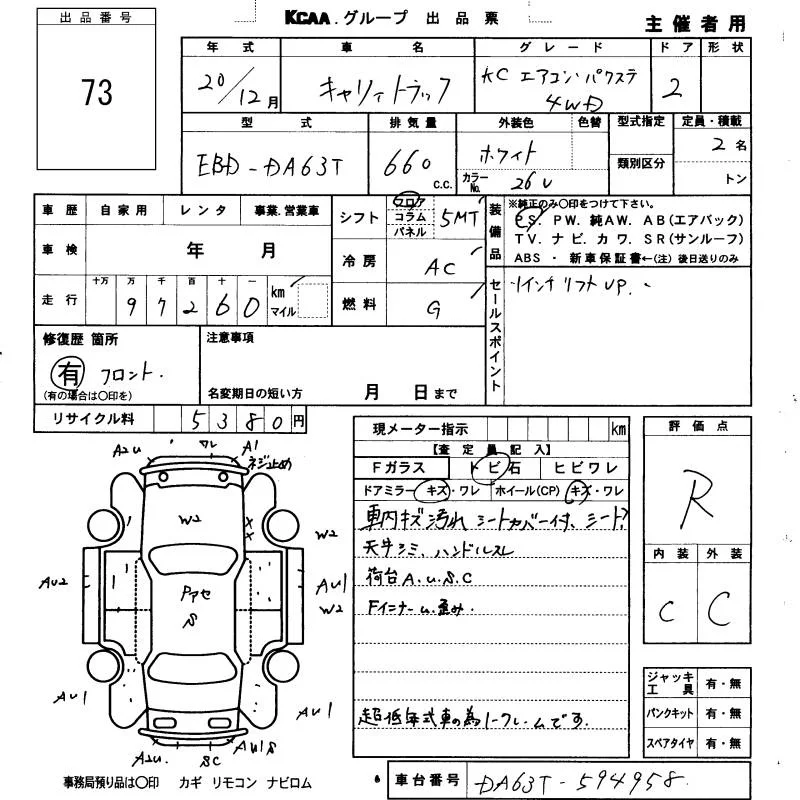 出品番号
73
KCAA.グループ 出品票
主催者用
年式 車名 グレード ドア 形状
20/12月 キャリィトラック KC エアコン・パワステ 4WD 2
型式 排気量 外装色 色替 型式指定 定員・積載
EBD-DA63T 660 c.c. ホワイト カラーNo. 26U 類別区分 2名 トン
車歴 自家用 レンタ 事業.営業車
車検 年 月
走行 十万 万 千 百 十 一 km マイル
97260
シフト フロア コラム パネル 5MT
冷房 AC
燃料 G
装備品
※純正のみ〇印をつけて下さい。
PS. PW. 純AW. AB(エアバック)
TV. ナビ. カワ. SR(サンルーフ)
ABS ・ 新車保証書←(注)後日送りのみ
セールスポイント
1インチリフトUP.
修復歴 箇所
有 フロント.
(有の場合は〇印を)
注意事項
名変期日の短い方 月 日まで
リサイクル料 5380円
現メーター指示 km
【査定員記入】
Fガラス トビ石 ヒビワレ
ドアミラー キズ・ワレ ホイール(CP) キズ・ワレ
車内キズ汚れ シートカバー付、シート?
天牛シミ、ハンドルスレ
荷台A.U.S.C
Fインナーu.歪み.
超低年式車の為ノークレームです.
評価点
R
内装 外装
C C
ジャッキ 工具 有・無
パンクキット 有・無
スペアタイヤ 有・無
A2U ワレ A1
ネジ止め
W2
W2
AU2
Pアセ
S
AU1
W2
AU1
AU1
A2U SC AU1S
事務局預り品は〇印 カギ リモコン ナビロム
6
車台番号 DA63T-594958